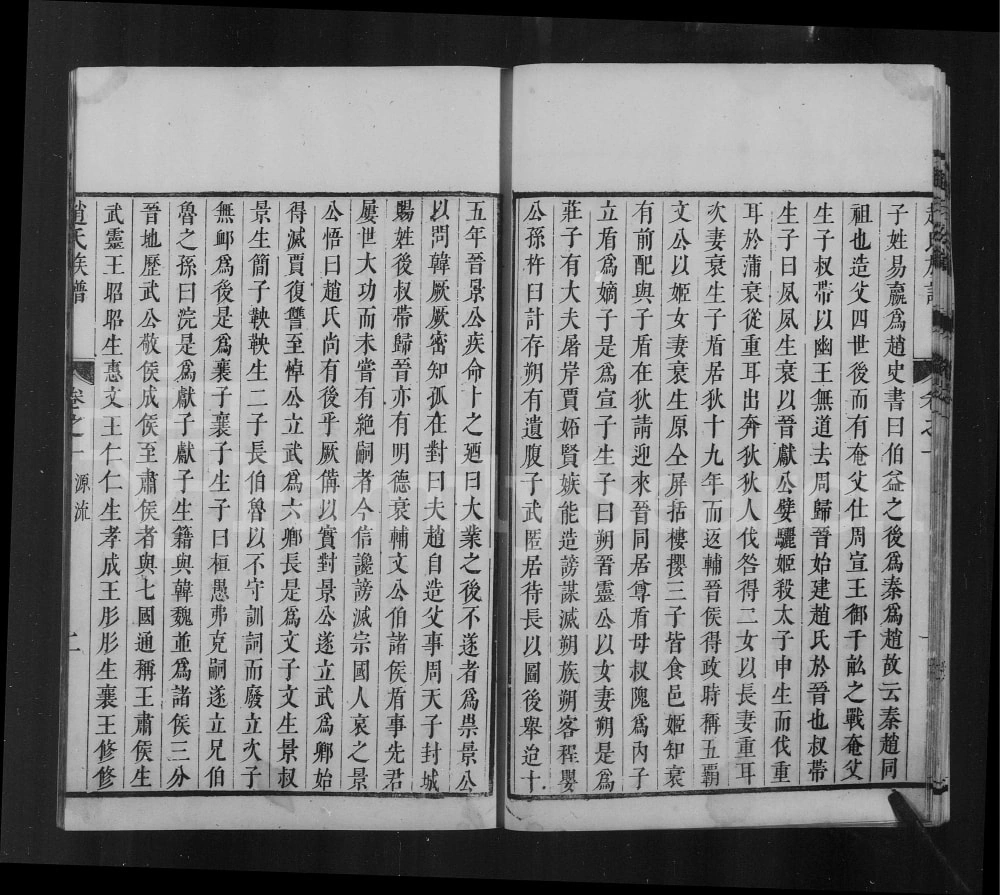 子姓易嬴爲趙史書曰伯益之後爲秦爲趙故云秦趙同
祖也造父四世後而有奄父仕周宣王御千畝之戰奄父
生子叔帶以幽王無道去周歸晉始建趙氏於晉也叔帶
生子曰夙夙生衰以晉獻公嬖驪姬殺太子申生而伐重
耳於蒲衰從重耳出奔狄狄人伐咎得二女以長妻重耳
次妻衰生子盾居狄十九年而返輔晉侯得政時稱五霸
文公以姬女妻衰生原仝屏括樓攖三子皆食邑姬知衰
有前配與子盾在狄請迎來晉同居尊盾母叔隗爲內子
立盾爲嫡子是爲宣子生子曰朔晉靈公以女妻朔是爲
莊子有大夫屠岸賈妬賢嫉能造謗謀滅朔族朔客程嬰
公孫杵曰計存朔有遺腹子武匿居待長以圖後舉迨十
五年晉景公疾命卜之廼曰大業之後不遂者爲祟景公
以問韓厥厥密知孤在對曰夫趙自造父事周天子封城
賜姓後叔帶歸晉亦有明德衰輔文公伯諸侯盾事先君
屢世大功而未嘗有絕嗣者今信讒謗滅宗國人哀之景
公悟曰趙氏尚有後乎厥僃以實對景公遂立武爲卿始
得滅賈復讐至悼公立武爲六卿長是爲文子文生景叔
景生簡子鞅鞅生二子長伯魯以不守訓詞而廢立次子
無卹爲後是爲襄子襄子生子曰桓愚弗克嗣遂立兄伯
魯之孫曰浣是爲獻子獻子生籍與韓魏並爲諸侯三分
晉地歷武公敬侯成侯至肅侯者與七國通稱王肅侯生
武靈王昭昭生惠文王仁仁生孝成王肜肜生襄王修修
趙氏族譜 卷之一 源流 二